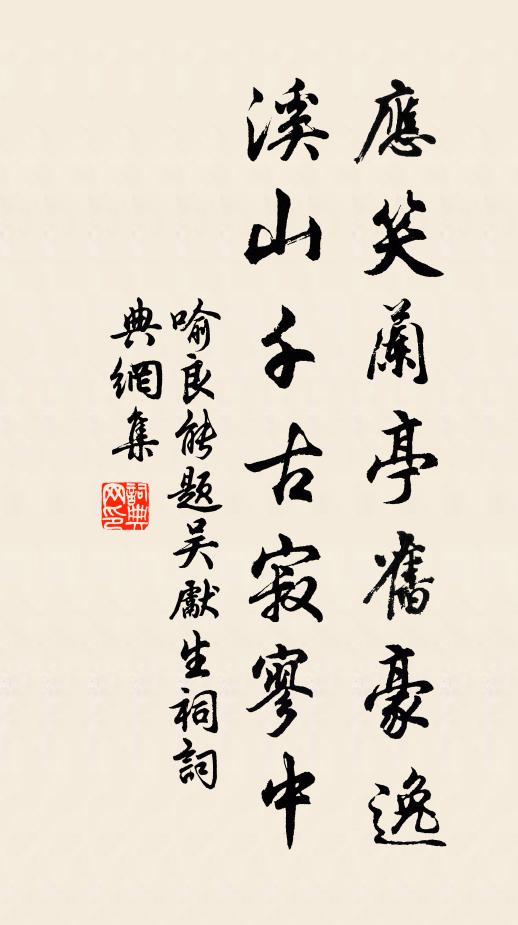 應笑蘭亭舊豪逸
溪山千古寂寥中
喻良能題吴獻生祠詞
典網集
詞典
网印